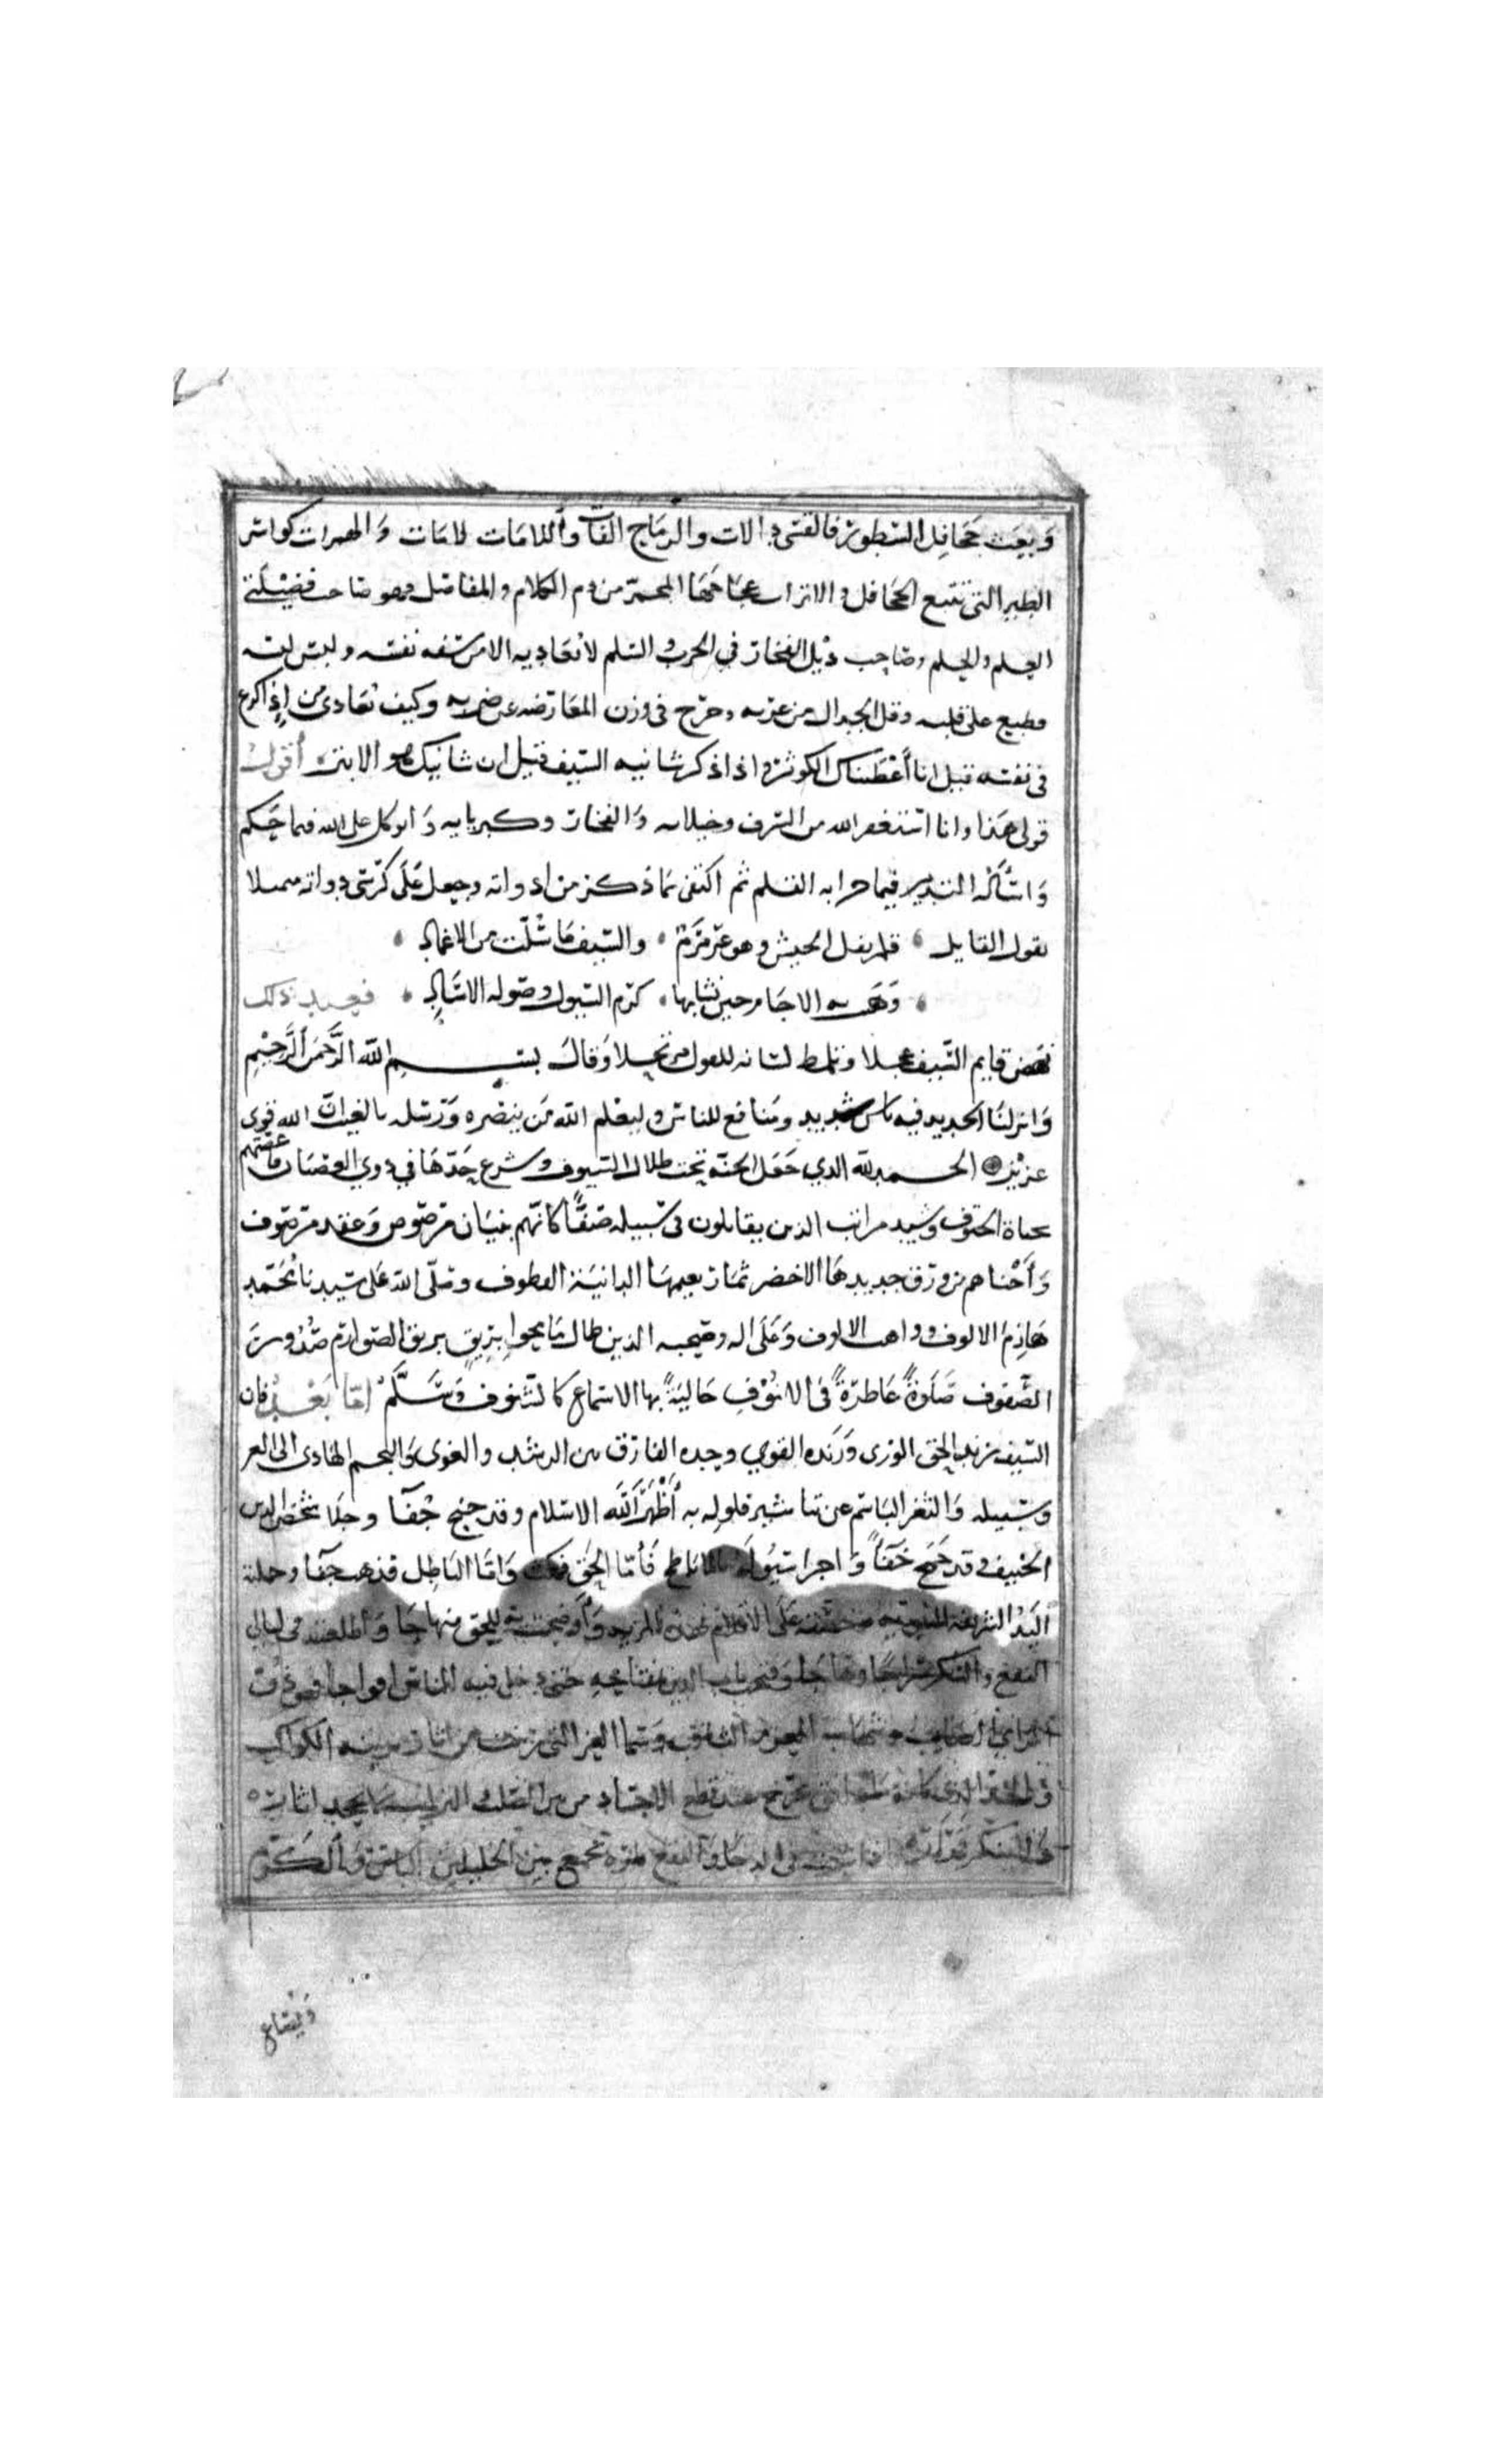 وبعث جحافل السطور فالقسي دالات والرماح الفات واللامات لامات والهمزات كواسر
الطير التي تتبع الجحافل والاتراب عجاجها المحمر من دم الكلام والمفاصل وهو صاحب فضيلتي
العلم والحلم وصاحب ذيل الفخار في الحرب والسلم لا تعاديه الا من سفه نفسه ولبس لبسه
وطبع على قلبه وفل الجدال من غربه وخرج في وزن المعارضه عن ضربه وكيف تعادى من إذا كرع
في نفسه قيل انا أعطيناك الكوثر واذا ذكر شانيه السيف قيل ان شانيك هو الابتر أقول
قولي هذا وانا استغفر الله من الشرف وخيلاه والفخار وكبريايه واتوكل على الله فيما حكم
وأسأله التدبير فيما جرا به القلم ثم اكتفى بما ذكر من ادواته وجعل على كرسي دواته متمثلا
بقول القايل قلم يفل الجيش وهو عرمرم والسيف ما سلت من الاغماد
وهبت به الاجام حين نشا بها كرم السيول وصولة الاساد فعند ذلك
نهض قايم السيف عجلا وتلمظ لسانه للقول مرتجلا وقال بسم الله الرحمن الرحيم
وانزلنا الحديد فيه باس شديد ومنافع للناس وليعلم الله من ينصره ورسله بالغيب ان الله قوي
عزيز الحمد لله الذي جعل الجنة تحت ظلال السيوف وشرع حدها في ذوي العصيان فاغصتهم
بماة الحتوف وشيد مراتب الذين يقاتلون في سبيله صفا كانهم بنيان مرصوص وعقد مرصوف
وأجناهم من ورق حديدها الاخضر ثمار نعيمها الدانية القطوف وصلى الله على سيدنا محمد
هازم الالوف وواهب الالوف وعلى اله وصحبه الذين طال ما محوا بريق بريق الصوارم صدور
الصفوف صلوة عاطرة في الانوف حالية بها الاسماع كالشنوف وسلم اما بعد فان
السيف زند الحق الوري وزنده القوي وحده الفارق بين الرشد والغوي والنجم الهادي الى العز
وسبيله والثغر الباسم عن تباشير فلوله به أظهر الله الاسلام وقد جنح جفا وجلا شخص الدين
الحنيف وقد جمح خفا واجرا سيوله بالاباطح فأما الحق فمكث واما الباطل فذهب جفا وحملته
اليد الشريفة النبويه وخصته على الاقلام بهذه المزيه وأوضحت به للحق منهاجا واطلعته في ليالي
النقع والشك سراجا وهاجا وفتحت باب الدين بمفتاحه حتى دخل فيه الناس افواجا فهو ذو
الراي الصايب وشهاب العزم الثاقب وسما العز التي زينت من اثاره بزينة الكواكب
والحد الذي كانه ماء دافق يخرج عند قطع الاجساد من بين الصلب والترايب لا يجحد اثاره
بين الحليتين الباس والكرم